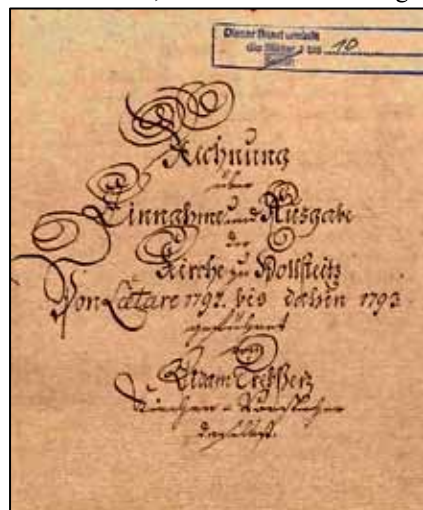 Dieser Band umfaßt
die Blätter 1 bis 10
Rechnung
über
Einnahme und Ausgabe
der
Kirche zu
Von Lätare 1792. bis dahin 1793
geführet
von
Adam
Kirchen-Vorsteher
daselbst.